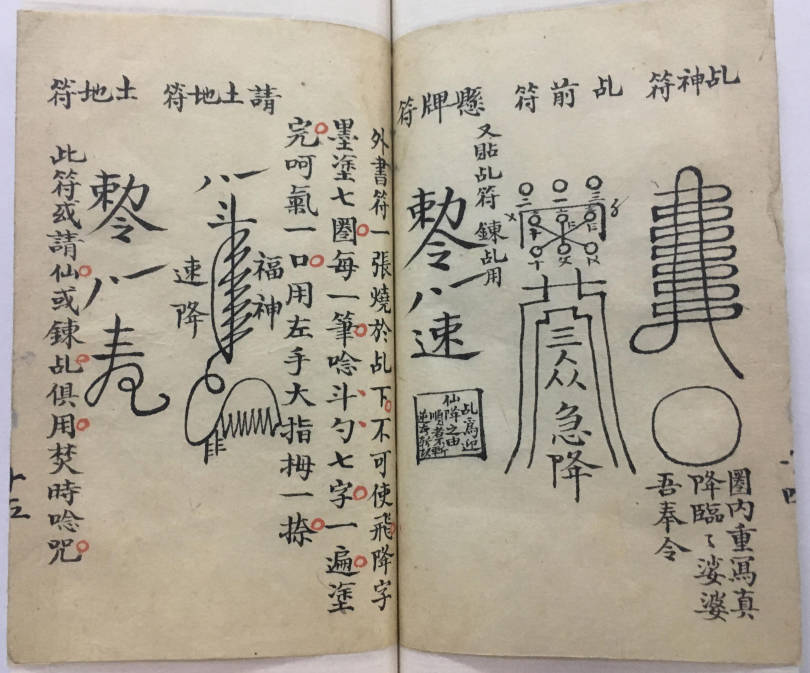 乩神符
圈内重寫真
降臨〻娑婆
吾奉令
乩前符
三
急降
懸牌符
又貼乩符 鍊乩用
勅令
八一
速
外書符一張燒於乩下不可使飛降字
墨塗七圈每一筆唸斗勺七字一遍塗
完呵氣一口用左手大指拇一捺
請土地符
八一斗
福神
速降
土地符
勅令
八一
此符或請仙或鍊乩俱用焚時唸咒
十五